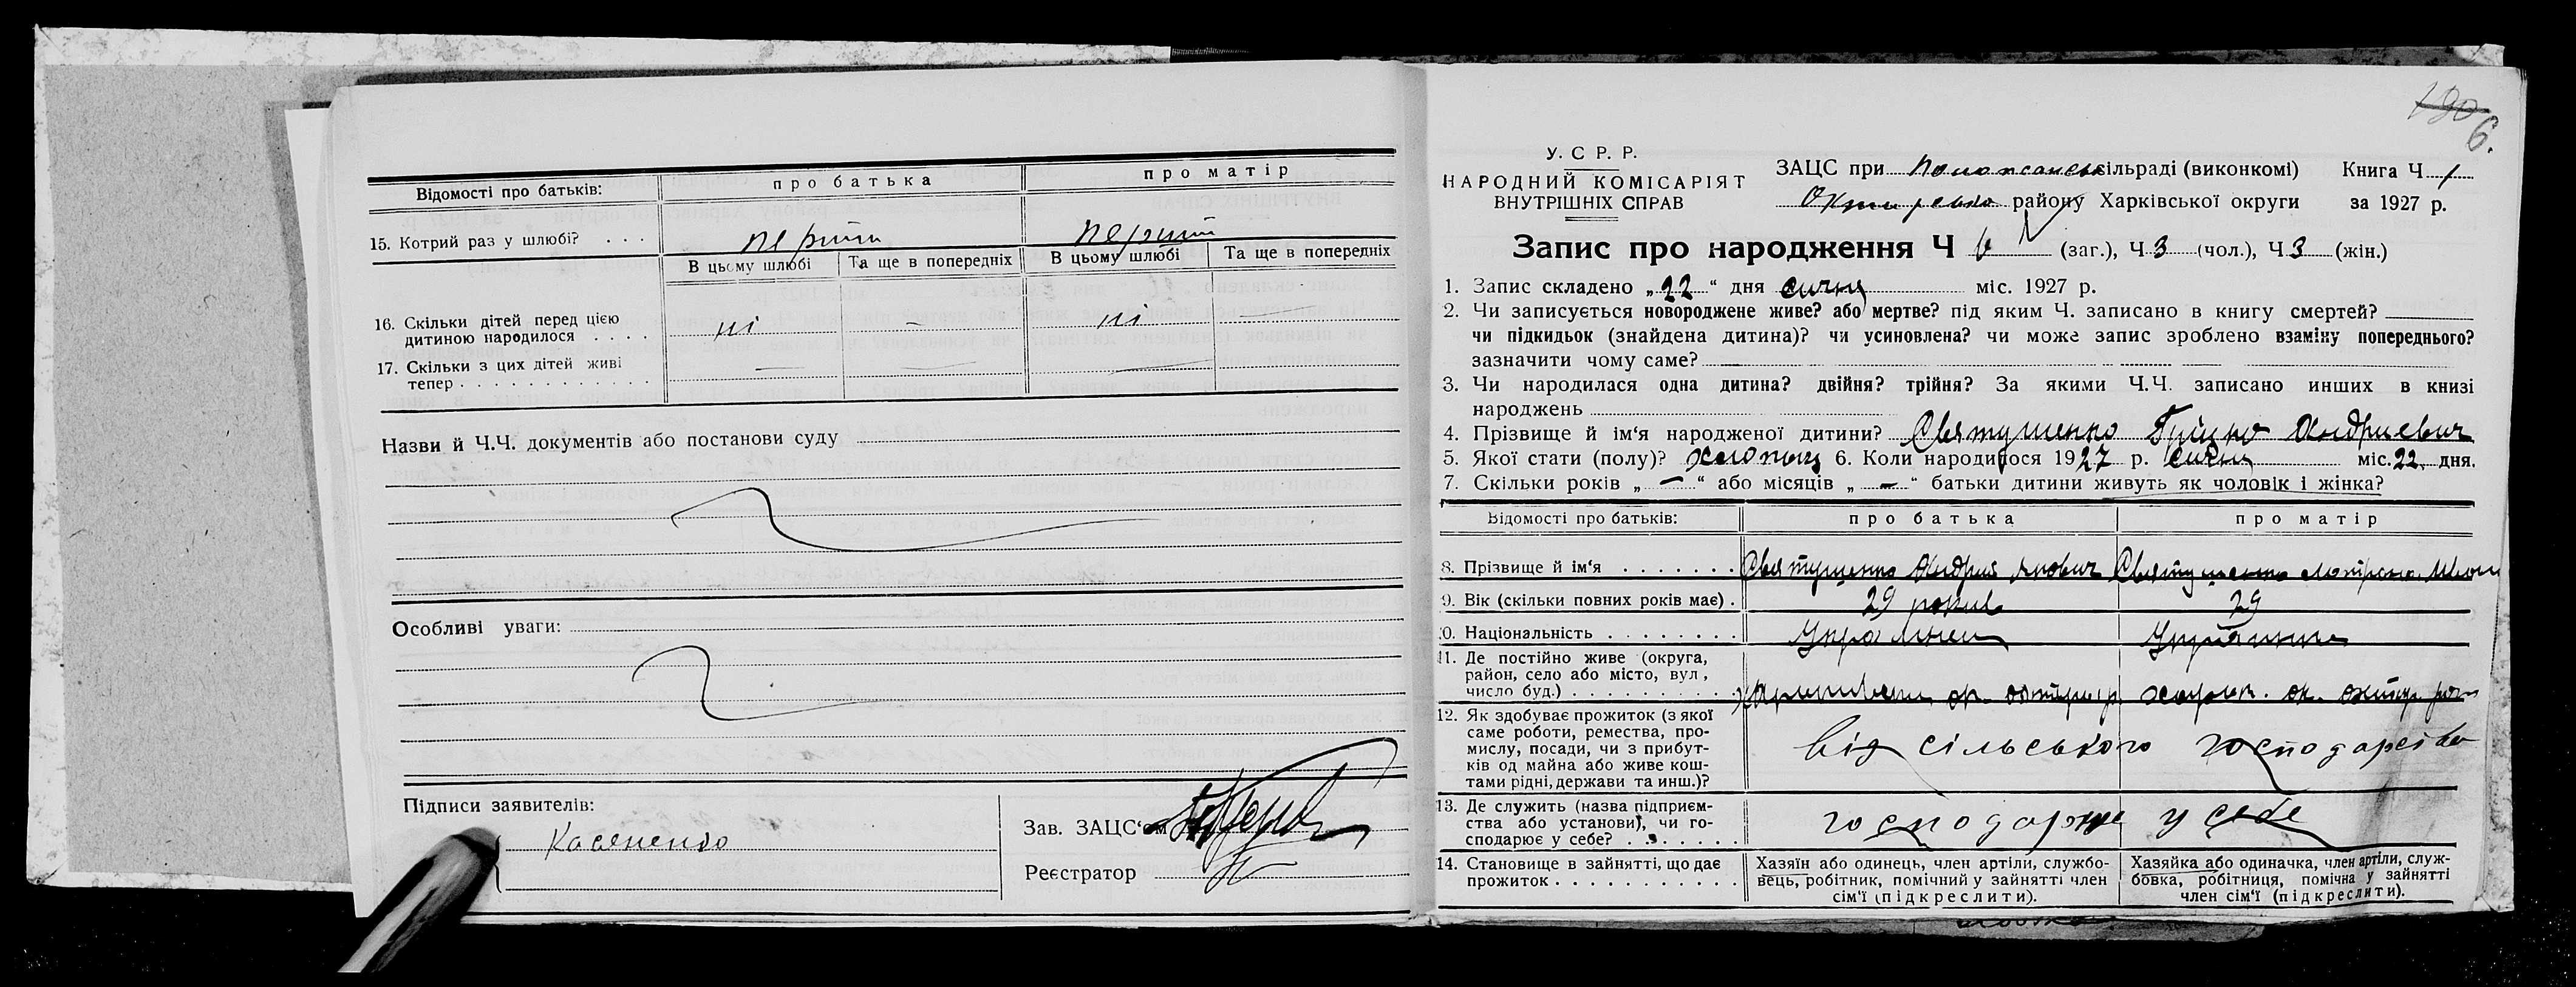 Відомості про батьків: про батька про матір
15. Котрий раз у шлюбі? . . . перший перший
В цьому шлюбі Та ще в попередніх В цьому шлюбі Та ще в попередніх
16. Скільки дітей перед цією
дитиною народилося . . . . ні — ні —
17. Скільки з цих дітей живі
тепер . . . . . . . . . . . . — — — —
Назви й Ч.Ч. документів або постанови суду
Особливі уваги:
Підписи заявителів:
Касяненко
Зав. ЗАЦС'ом
Реєстратор
190
6.
У. С Р. Р.
НАРОДНИЙ КОМІСАРІЯТ
ВНУТРІШНІХ СПРАВ
ЗАЦС при сільраді (виконкомі) Книга Ч 1
району Харківської округи за 1927 р.
Запис про народження Ч 6 (заг.), Ч 3 (чол.), Ч 3 (жін.)
1. Запис складено „ 22 “ дня січня міс. 1927 р.
2. Чи записується новороджене живе? або мертве? під яким Ч. записано в книгу смертей?
чи підкидьок (знайдена дитина)? чи усиновлена? чи може запис зроблено взаміну попереднього?
зазначити чому саме?
3. Чи народилася одна дитина? двійня? трійня? За якими Ч.Ч. записано инших в книзі
народжень
4. Прізвище й ім'я народженої дитини? Святушенко Андриевич
5. Якої статі (полу)? хлопець 6. Коли народилося 1927 р. січня міс. 22 дня.
7. Скільки років „ — “ або місяців „ — “ батьки дитини живуть як чоловік і жінка?
Відомості про батьків: про батька про матір
8. Прізвище й ім'я . . . . . . . Святушенко Андрий Святушенко Мотрона
9. Вік (скільки повних років має) . 29 років 29
0. Національність . . . . . . . . Українец Українка
11. Де постійно живе (округа,
район, село або місто, вул,
число буд.) . . . . . . . . . . ок. ок.
12. Як здобуває прожиток (з якої
саме роботи, ремества, про-
мислу, посади, чи з прибут-
ків од майна або живе кош-
тами рідні, держави та инш.)? від сільського господарства
13. Де служить (назва підприєм-
ства або установи), чи го-
сподарює у себе? . . . . . . . господарює у себе
14. Становище в зайнятті, що дає
прожиток . . . . . . . . . . . .
Хазяїн або одинець, член артіли, службо-
вець, робітник, помічний у зайнятті член
сім'ї (підкреслити).
Хазяйка або одиначка, член артіли, служ-
бовка, робітниця, помічна у зайнятті
член сім'ї (підкреслити).